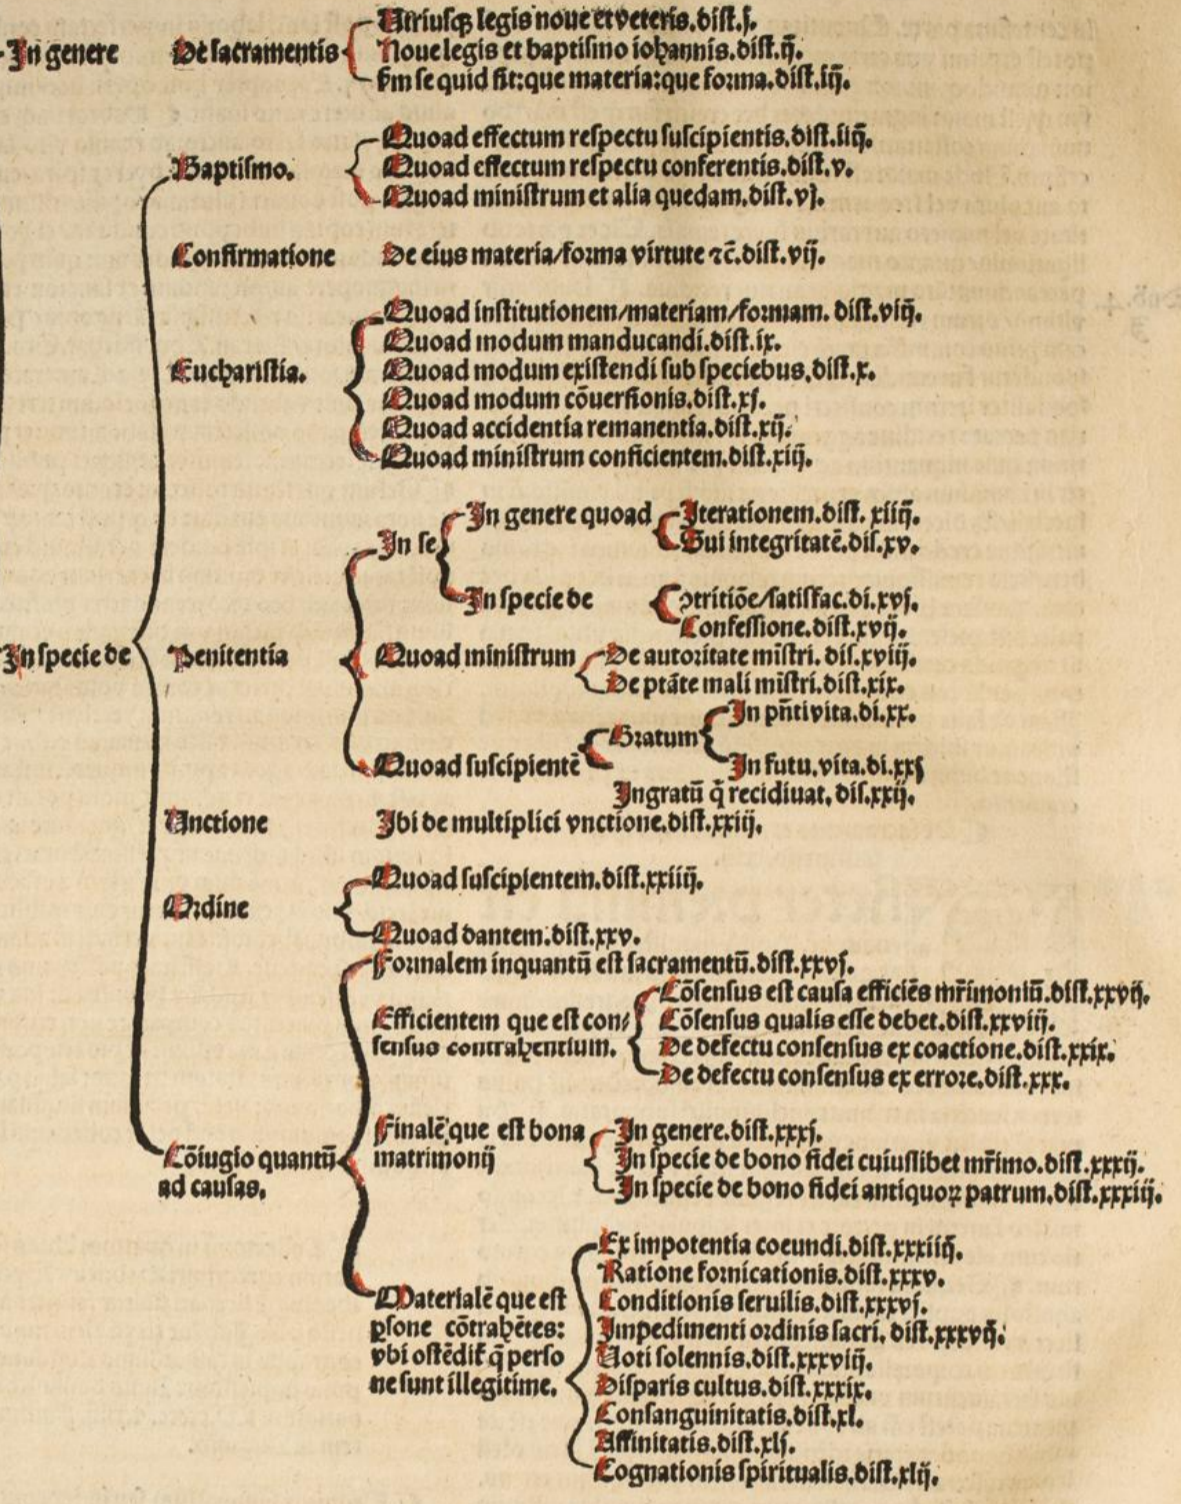 In genere De sacramentis
Utriusqꝫ legis noue et veteris.dist.j.
Noue legis et baptismo iohannis.dist.ij.
Ꝑm se quid sit:que materia:que forma.dist.iij.
In specie de
Baptismo.
Quoad effectum respectu suscipientis.dist.iiij.
Quoad effectum respectu conferentis.dist.v.
Quoad ministrum et alia quedam.dist.vj.
Confirmatione De eius materia/forma virtute ⁊c̄.dist.vij.
Eucharistia.
Quoad institutionem/materiam/formam. dist.viij.
Quoad modum manducandi.dist.ix.
Quoad modum existendi sub speciebus.dist.x.
Quoad modum cōuersionis.dist.xj.
Quoad accidentia remanentia.dist.xij.
Quoad ministrum conficientem.dist.xiij.
Penitentia
In se
In genere quoad
Iterationem.dist. xiiij.
Sui integritatē.dis.xv.
In specie de
Ↄtritiōe/satisfac.di.xvj.
Confessione.dist.xvij.
Quoad ministrum
De autoritate mīstri. dis.xviij.
De ptāte mali mīstri.dist.xix.
Quoad suscipientē
Gratum
In pn̄ti vita.di.xx.
In futu.vita.di.xxj
Ingratū q̄ recidiuat. dis.xxij.
Unctione Ibi de multiplici vnctione.dist.xxiij.
Ordine
Quoad suscipientem.dist.xxiiij.
Quoad dantem.dist.xxv.
Cōiugio quantū
ad causas.
Formalem inquantū est sacramentū.dist.xxvj.
Efficientem que est con⸗
sensus contrahentium.
Cōsensus est causa efficiēs mr̄imoniū.dist.xxvij.
Cōsensus qualis esse debet.dist.xxviij.
De defectu consensus ex coactione.dist.xxix.
De defectu consensus ex errore.dist.xxx.
Finalē que est bona
matrimonij
In genere.dist.xxxj.
In specie de bono fidei cuiuslibet mr̄imo.dist.xxxij.
In specie de bono fidei antiquoꝝ patrum.dist.xxxiij.
Materialē que est
ꝑsone cōtrahētes:
vbi ostēdit̄ q̄ perso
ne sunt illegitime.
Ex impotentia coeundi.dist.xxxiiij.
Ratione fornicationis.dist.xxxv.
Conditionis seruilis.dist.xxxvj.
Impedimenti ordinis sacri. dist.xxxvij.
Uoti solennis.dist.xxxviij.
Disparis cultus.dist.xxxix.
Consanguinitatis.dist.xl.
Affinitatis.dist.xlj.
Cognationis spiritualis.dist.xlij.